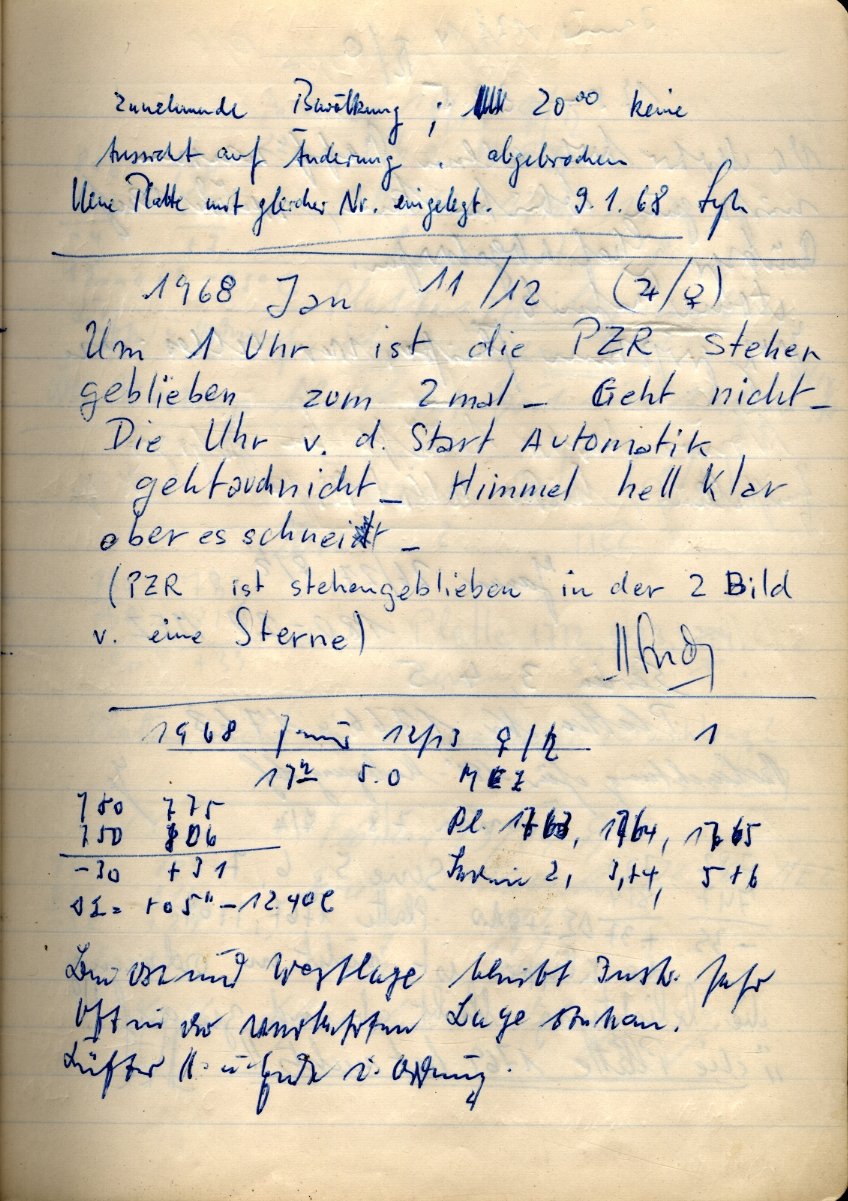 zunehmende Bewölkung ; 20⁰⁰ keine
Aussicht auf Änderung . abgebrochen
Neue Platte mit gleicher Nr. eingelegt. 9.1.68
1968 Jan 11/12 (♃/♀)
Um 1 Uhr ist die PZR stehen
geblieben zum 2mal_ Geht nicht_
Die Uhr v. d. Start Automatik
geht auch nicht_ Himmel hell Klar
aber es schneit_
(PZR ist stehengeblieben in der 2 Bild
v. eine Sterne)
1968 Januar 12/13 ♀/♄ 1
17ʰ 5.0 MEZ
780 775
750 806
-30 +31
Pl. 1763, 1764, 1765
2, 3+4, 5+6
= +05" -12.40
Bei Ost und Westlage bleibt Instr. sehr
oft in der verkehrten Lage stehen.
Lüfter i. Ordnung.